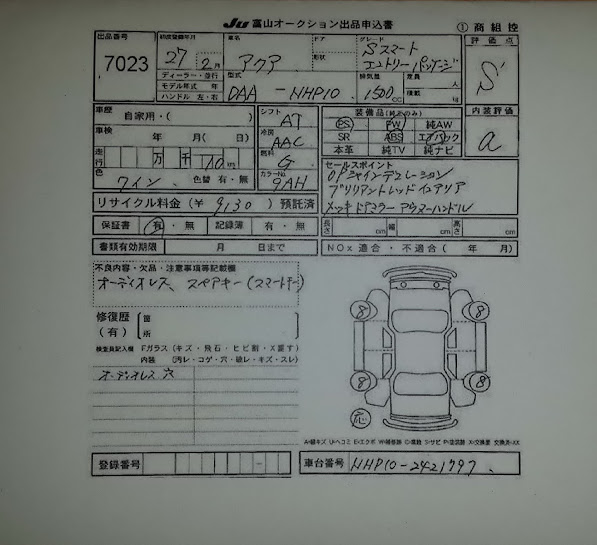 JU 富山オークション出品申込書
① 商組控
出品番号 7023
初度登録年月 27年 2月
車名 アクア
ドア
形状
グレード Sスマート エントリーパッケージ
評価点 S
ディーラー・並行
モデル年式 年
ハンドル 左・右
型式 DAA-NHP10
排気量 1500cc
定員 人
積載 kg
内装評価 a
車歴 自家用・( )
シフト AT
装備品(純正のみ)
PS PW 純AW
SR ABS エアバック
本革 純TV 純ナビ
車検 年 月( 日)
冷房 AAC
走行 万 千 10 km
燃料 G
色 ワイン 色替 有・無
カラーNo. 9AH
セールスポイント
ブリリアントレッドインテリア
メッキドアミラー アウターハンドル
リサイクル料金(¥ 9,130)預託済
保証書 有・無 記録簿 有・無
長さ cm 幅 cm 高さ cm
書類有効期限 月 日まで
NOx 適合・不適合( 年 月)
不良内容・欠品・注意事項等記載欄
オーディオレス、スペアキー(スマートキー)
修復歴(有) 箇所
検査員記入欄 Fガラス(キズ・飛石・ヒビ割・X直す)
内装 (汚レ・コゲ・穴・破レ・キズ・スレ)
オーディオレス 穴
8 8
8 8
応
登録番号
車台番号 NHP10-2421797